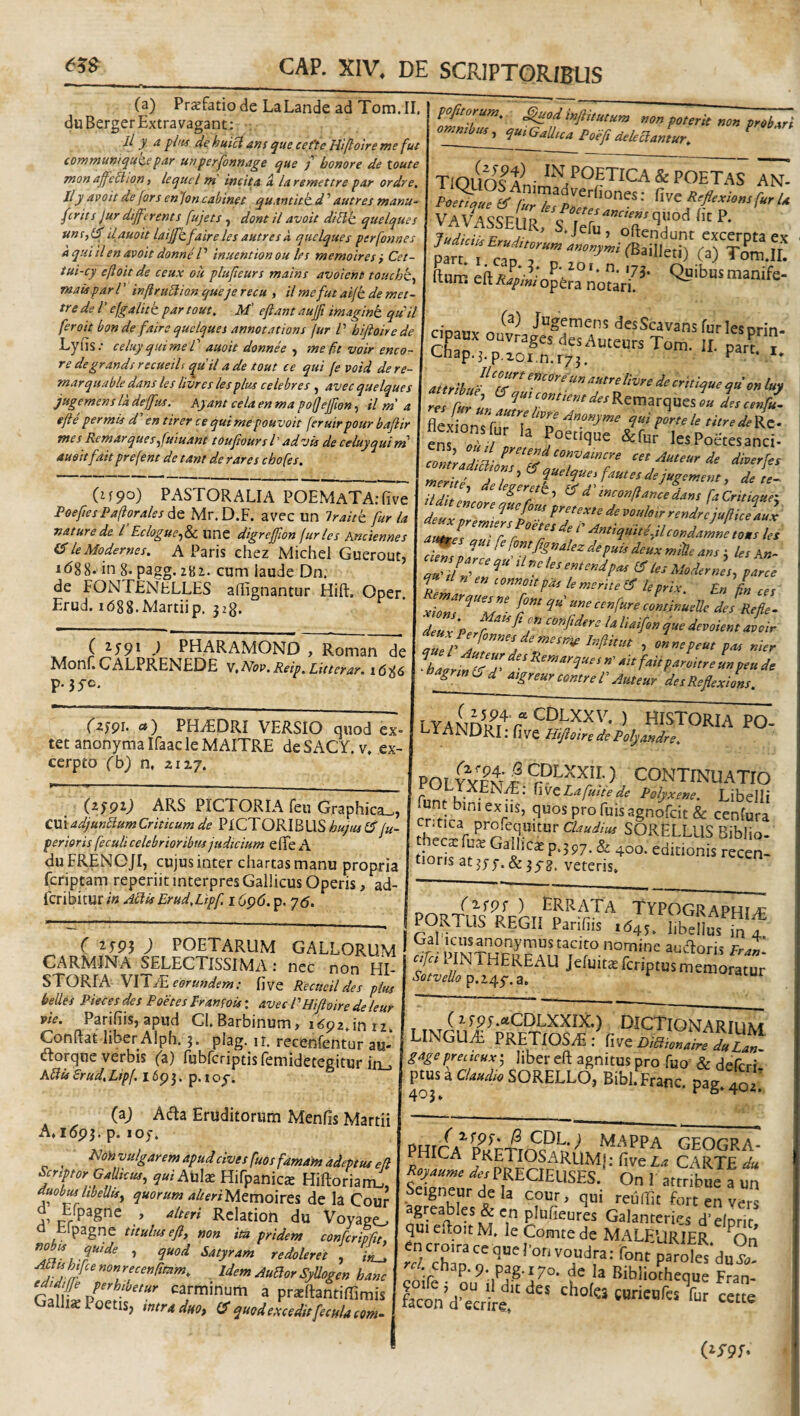 658 CAP. XIV. DE SCRIPTORIBUS
(a) Præfatio de LaLande ad Tom. II.
du Berger Extravagant:
Il y a plus de huict ans que cette Histoire me fut
communiquée par un personnage que j' honore de toute
mon affection, lequel m' incita à la remettre par ordre.
Il y avoit de fors en son cabinet quantité d' autres manu-
scrits sur differents sujets, dont il avoit dicté quelques
uns, & il auoit laissé faire les autres à quelques personnes
à qui il en avoit donné l' inuention ou les memoires; Cet-
tui-cy estoit de ceux où plusieurs mains avoient touché,
mais par l' instruction que je recu, il me fut aisé de met-
tre de l' esgalité par tout. M' estant aussi imaginé qu'il
seroit bon de faire quelques annotations sur l' histoire de
Lysis: celuy qui me l' auoit donnée, me fit voir enco-
re de grands recueils qu'il a de tout ce qui se void de re-
marquable dans les livres les plus celebres, avec quelques
jugemens là dessus. Ayant cela en ma possession, il m' a
esté permis d' en tirer ce qui me pouvoit seruir pour bastir
mes Remarques, suiuant tousiours l' advis de celuy qui m'
auoit fait present de tant de rares choses.
(2590) PASTORALIA POEMATA: sive
Poesies Pastorales de Mr. D.F. avec un Traité sur la
nature de l' Eclogue, & une digression sur les Anciennes
& le Modernes. A Paris chez Michel Guerout,
1688. in 8. pagg. 282. cum laude Dn.
de FONTENELLES assignantur Hist. Oper.
Erud. 1688. Martii p. 328.
(2591) PHARAMOND, Roman de
Monf. CALPRENEDE v. Nov. Reip. Litterar. 1686
p. 350.
(2591. α) PHÆDRI VERSIO quod ex-
tet anonyma Isaac le MAITRE de SACY. v. ex-
cerpto (b) n. 2127.
(2592) ARS PICTORIA seu Graphica,
cui adjunctum Criticum de PICTORIBUS hujus & su-
perioris seculi celebrioribus judicium esse A
du FRENOJI, cujus inter chartas manu propria
scriptam reperiit interpres Gallicus Operis, ad-
scribitur in Actis Erud. Lips. 1696. p. 76.
(2593) POETARUM GALLORUM
CARMINA SELECTISSIMA: nec non HI-
STORIA VITÆ eorundem: sive Recueil des plus
belles Pieces des Poëtes François: avec l' Histoire de leur
vie. Parisiis, apud Cl. Barbinum, 1692. in 12.
Constat liber Alph. 3. plag. 11. recensentur au-
ctorque verbis (a) subscriptis semidetegitur in
Actis Erud. Lips. 1693. p. 105.
(a) Acta Eruditorum Mensis Martii
A. 1693. p. 105.
Non vulgarem apud cives suos famam adeptus est
Scriptor Gallicus, qui Aulæ Hispanicæ Historiam,
duobus libellis, quorum alteri Memoires de la Cour
d' Espagne, alteri Relation du Voyage
d' Espagne titulus est, non ita pridem conscripsit,
nobis quide, quod Satyram redoleret, in
Actis hisce non recensitam. Idem Auctor Syllogen hanc
edidisse perhibetur carminum a præstantissimis
Galliæ Poetis, intra duo, & quod excedit secula com-
positorum. Quod institutum non poterit non probari
omnibus, qui Gallica Poësi delectantur.
(2594) IN POETICA & POETAS AN-
TIQUOS Animadversiones: sive Reflexions sur la
Poetique & sur les Poetes anciens quod sit P.
VAVASSEUR, S. Jesu, ostendunt excerpta ex
Judiciis Eruditorum anonymi (Bailleti) (a) Tom. II.
part. 1. cap. 3. p. 201. n. 173. Quibus manife-
stum est Rapini opera notari.
(a) Jugemens des Scavans sur les prin-
cipaux ouvrages des Auteurs Tom. II. part. 1.
Chap. 3. p. 201. n. 173.
Il court encore un autre livre de critique qu' on luy
attribue, & qui contient des Remarques ou des censu-
res sur un autre livre Anonyme qui porte le titre de Re-
flexions sur la Poetique & sur les Poëtes anci-
ens, où il pretend convaincre cet Auteur de diverses
contradictions, & quelques fautes de jugement, de te-
merité, de legereté, & d' inconstance dans sa Critique;
il dit encore que sous pretexte de vouloir rendre justice aux
deux premiers Poëtes de l' Antiquité, il condamne tous les
autres qui se sont signalez depuis deux mille ans; les An-
ciens parce qu' il ne les entend pas & les Modernes, parce
qu' il n' en connoit pas le merite & le prix. En fin ces
Remarques ne sont qu' une censure continuelle des Refle-
xions. Mais si on considere la liaison que devoient avoir
deux Personnes de mesme Institut, on ne peut pas nier
que l' Auteur des Remarques n' ait fait paroitre un peu de
chagrin & d' aigreur contre l' Auteur des Reflexions.
(2594. α CDLXXV.) HISTORIA PO-
LYANDRI: sive Histoire de Polyandre.
(2594. β CDLXXII.) CONTINUATIO
POLYXENÆ: sive La suite de Polyxene. Libelli
sunt bini ex iis, quos pro suis agnoscit & censura
critica prosequitur Claudius SORELLUS Biblio-
thecæ suæ Gallicæ p. 397. & 400. editionis recen-
tioris at 355. & 358. veteris.
(2595) ERRATA TYPOGRAPHIÆ
PORTUS REGII Parisiis 1645. libellus in 4.
Gallicus anonymus tacito nomine auctoris Fran-
cisci PINTHEREAU Jesuitæ scriptus memoratur
Sotvello p. 245. a.
(2595. α CDLXXIX.) DICTIONARIUM
LINGUÆ PRETIOSÆ: sive Dictionaire du Lan-
gage precieux; liber est agnitus pro suo & descri-
ptus à Claudio SORELLO, Bibl. Franc. pag. 402.
403.
(2595. β CDL.) MAPPA GEOGRA-
PHICA PRETIOSARUM: sive La CARTE du
Royaume des PRECIEUSES. On l' attribue a un
Seigneur de la cour, qui reüssit fort en vers
agreables & en plusieures Galanteries d'esprit,
qui estoit M. le Comte de MALEURIER. On
en croira ce que l'on voudra: sont paroles du So-
rel. chap. 9. pag. 170. de la Bibliotheque Fran-
çoise; ou il dit des choses curieuses sur cette
facon d'ecrire,
(2595.